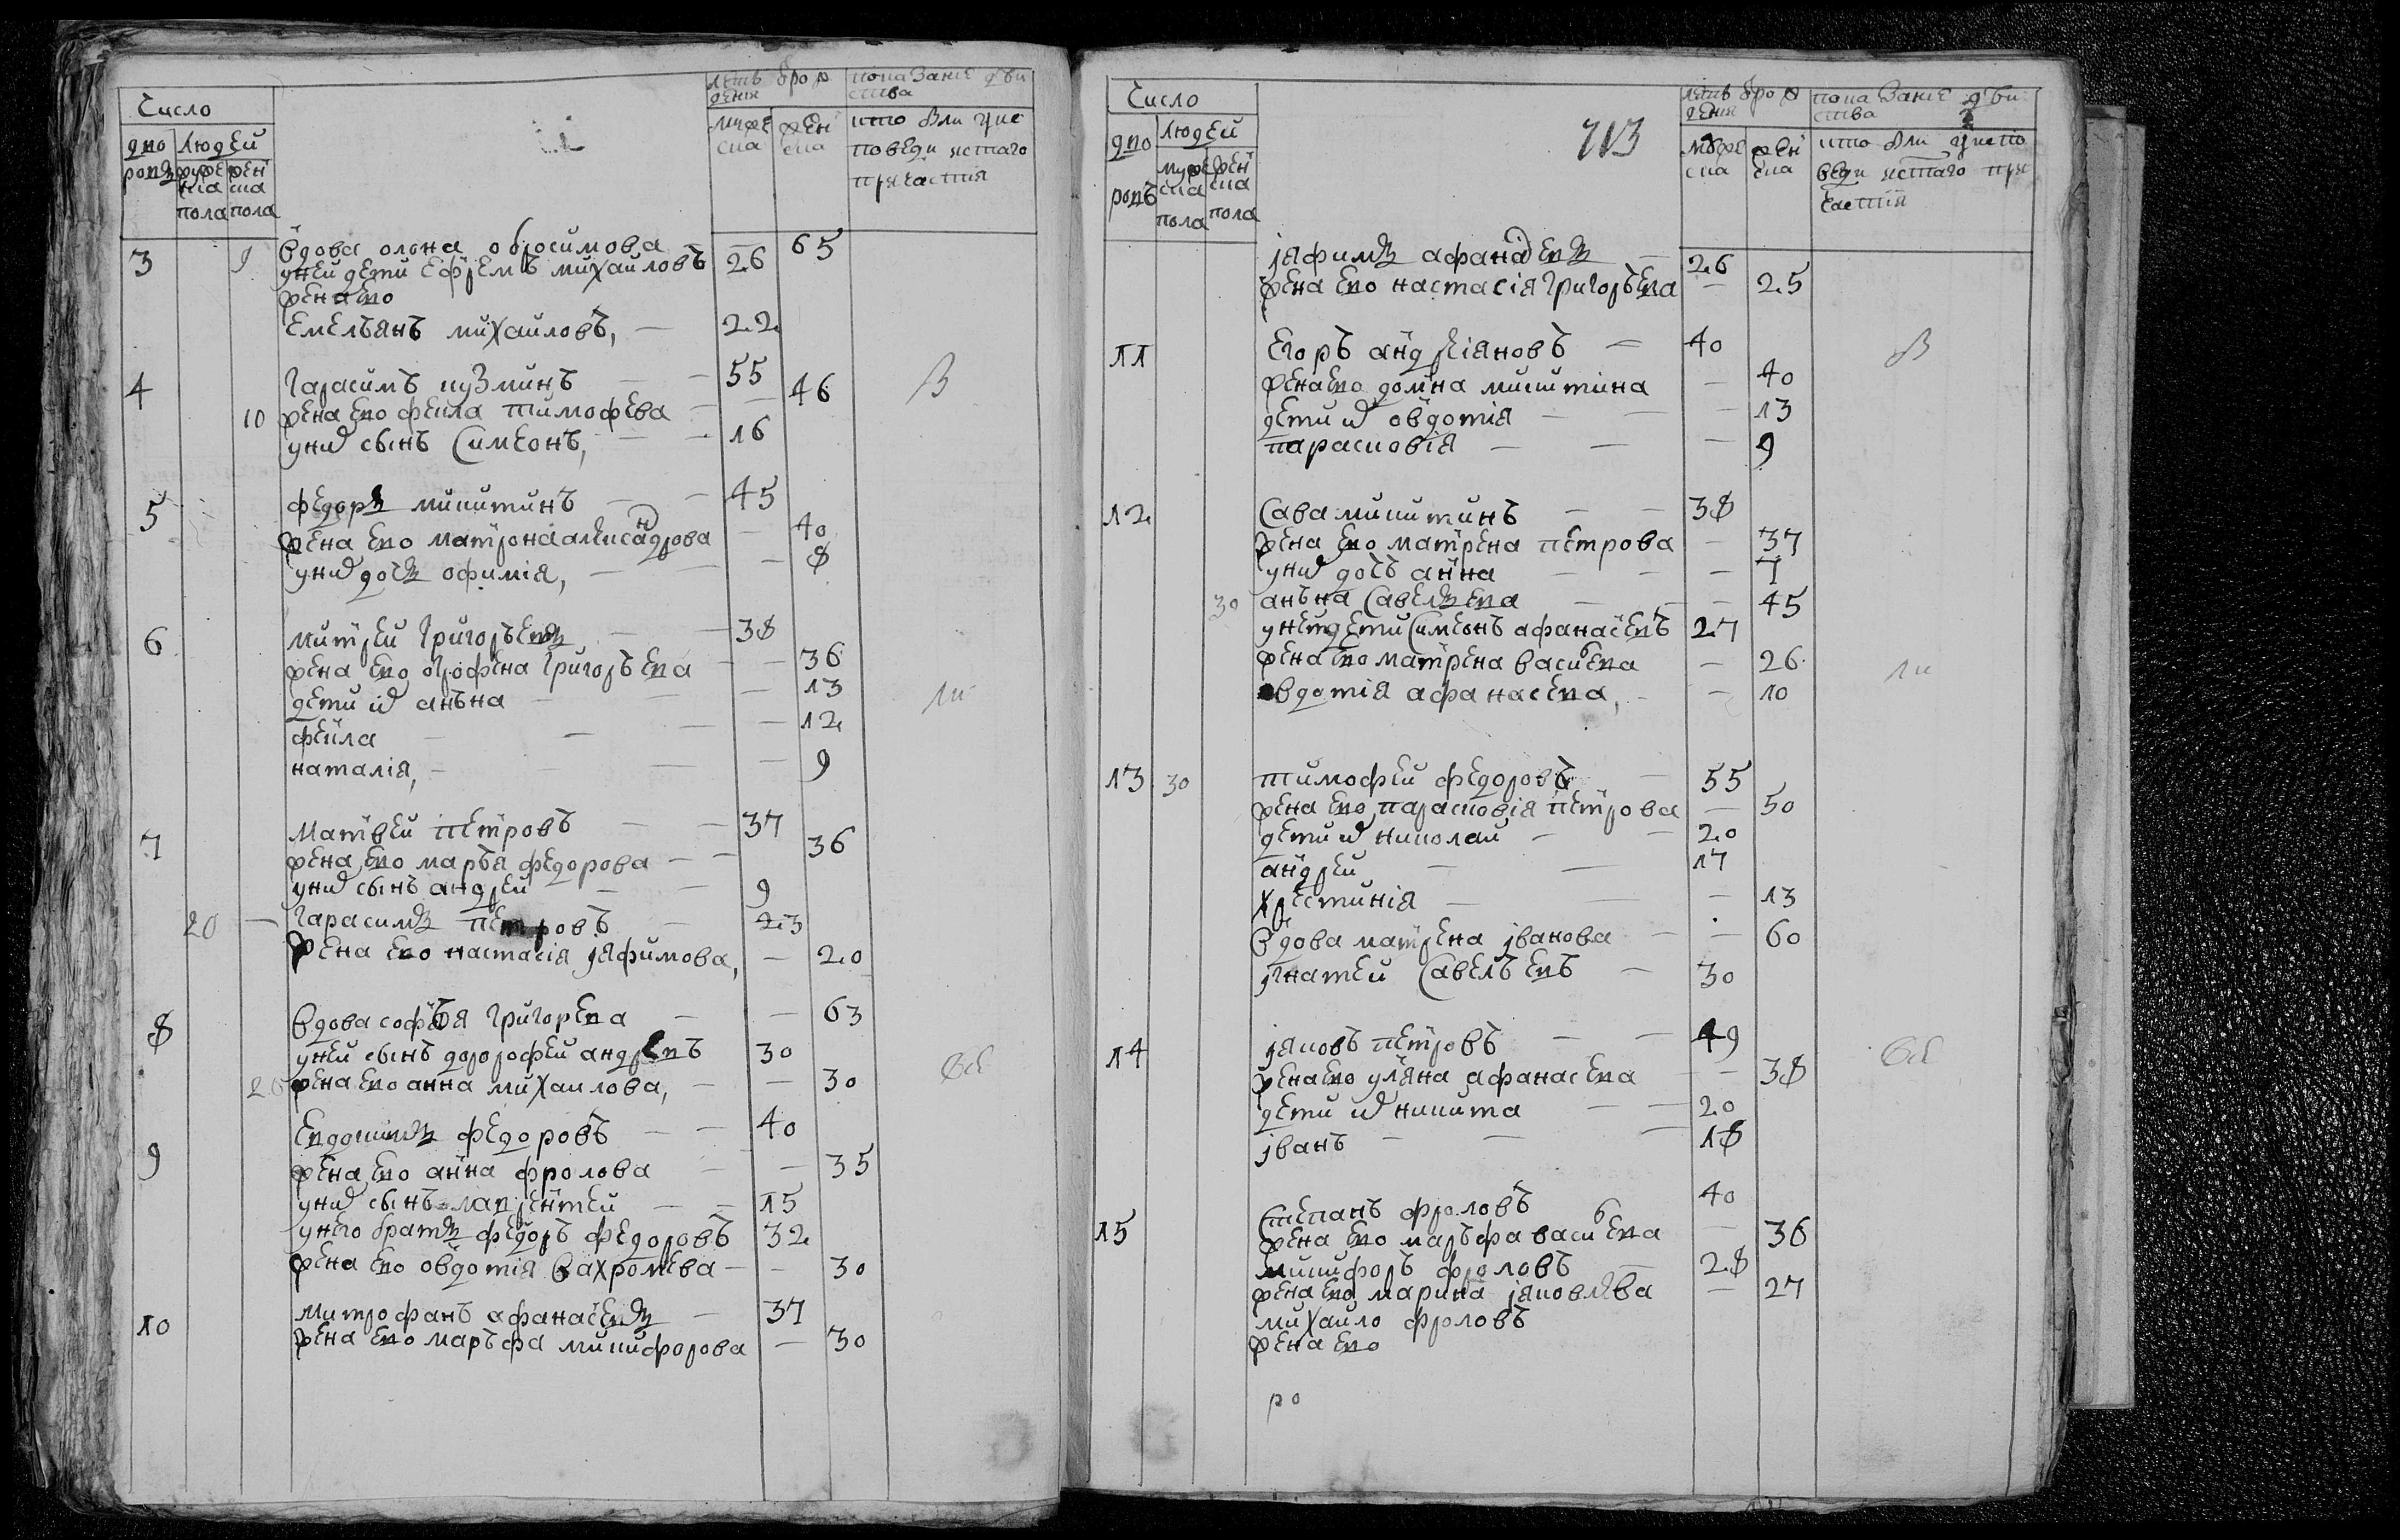 Число
дво
ровъ
людей
муже
ска
пола
жен
ска
пола
летъ ѿ рож
дения
муже
ска
жен
ска
показание дѣи
ства
кто был у ис
поведи истаго
причастия
3 9 вдова олона обросимова 65
уней дети ефремъ михаиловъ 26
жена ево
емельянъ михаиловъ, 22
4 гарасимъ кузминъ 55
10 жена ево фекла тимофева 46
у них сынъ Симеонъ, 16
5 федоръ микитинъ 45
жена ево матрона александрова 40
у них дочъ офимия, 8
6 митреи григорьевъ 38
жена ево огрофена григорьева 36
дети их анъна 13
фекла 12
наталия, 9
7 матвеи петровъ 37
жена ево маръя федорова 36
у них сынъ андреи 9
20 гарасимъ петровъ 23
жена ево настасия яфимова, 20
8 вдова софья григорева 63
у ней сынъ дорофеи андревъ 30
жена ево анна михаилова, 30
9 евдокимъ федоровъ 40
жена ево анна фролова 35
у них сынъ лаврентеи 15
у него братъ федоръ федоровъ 32
жена ево овдотия вахромева 30
10 митрофанъ афанасевъ 37
жена ево маръфа микифорова 30
Число
дво
ровъ
людей
муже
ска
пола
жен
ска
пола
713
летъ ѿ рож
дения
муже
ска
жен
ска
показание дѣи
ства
кто был у испо
веди истаго при
частия
яфимъ афанасевъ 26
жена ево настасия григорьева 25
11 егоръ андреяновъ 40
жена ево домна микитина 40
дети их овдотия 13
парасковия 9
12 Сава микитинъ 38
жена ево матрена петрова 37
у них дочъ анна 7
30 анъна Савелъева 45
у ней дети Симеонъ афанасевъ 27
жена ево матрена васильева 26
овдотия афанасева, 10
13 30 тимофеи федоровъ 55
жена ево парасковия петрова 50
дети их николаи 20
андреи 17
христиния 13
вдова матрена иванова 60
игнатеи Савельевъ 30
14 яковъ петровъ 49
жена ево уляна афанасева 38
дети их никита 20
иванъ 18
15 Степанъ фроловъ 40
жена ево маръфа васильева 36
микифоръ фроловъ 28
жена ево марина яковлева 27
михаило фроловъ
жена ево